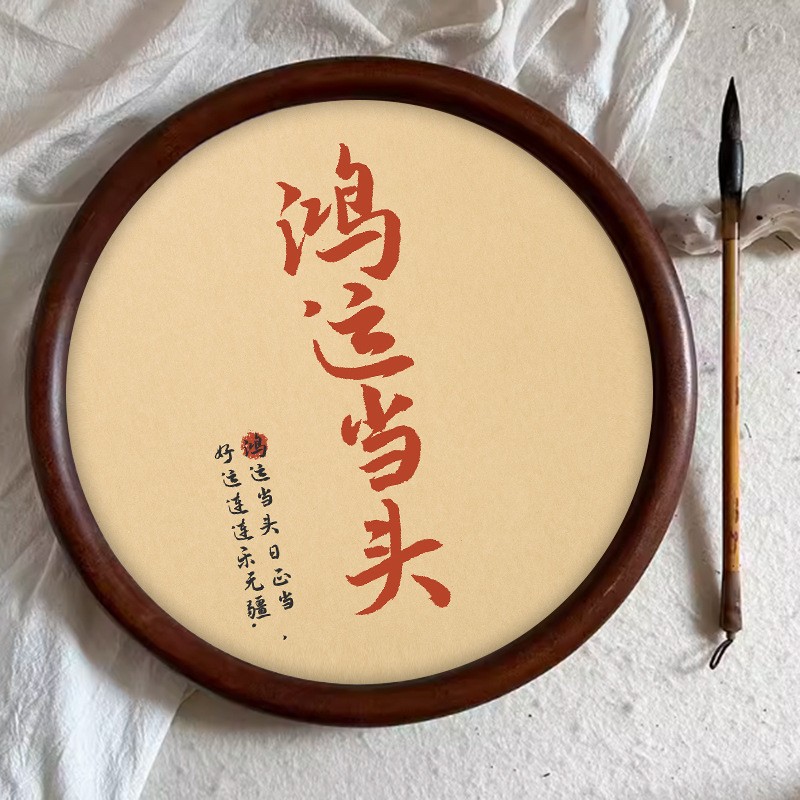 鸿运当头
鸿运当头日正当，
好运连连乐无疆.